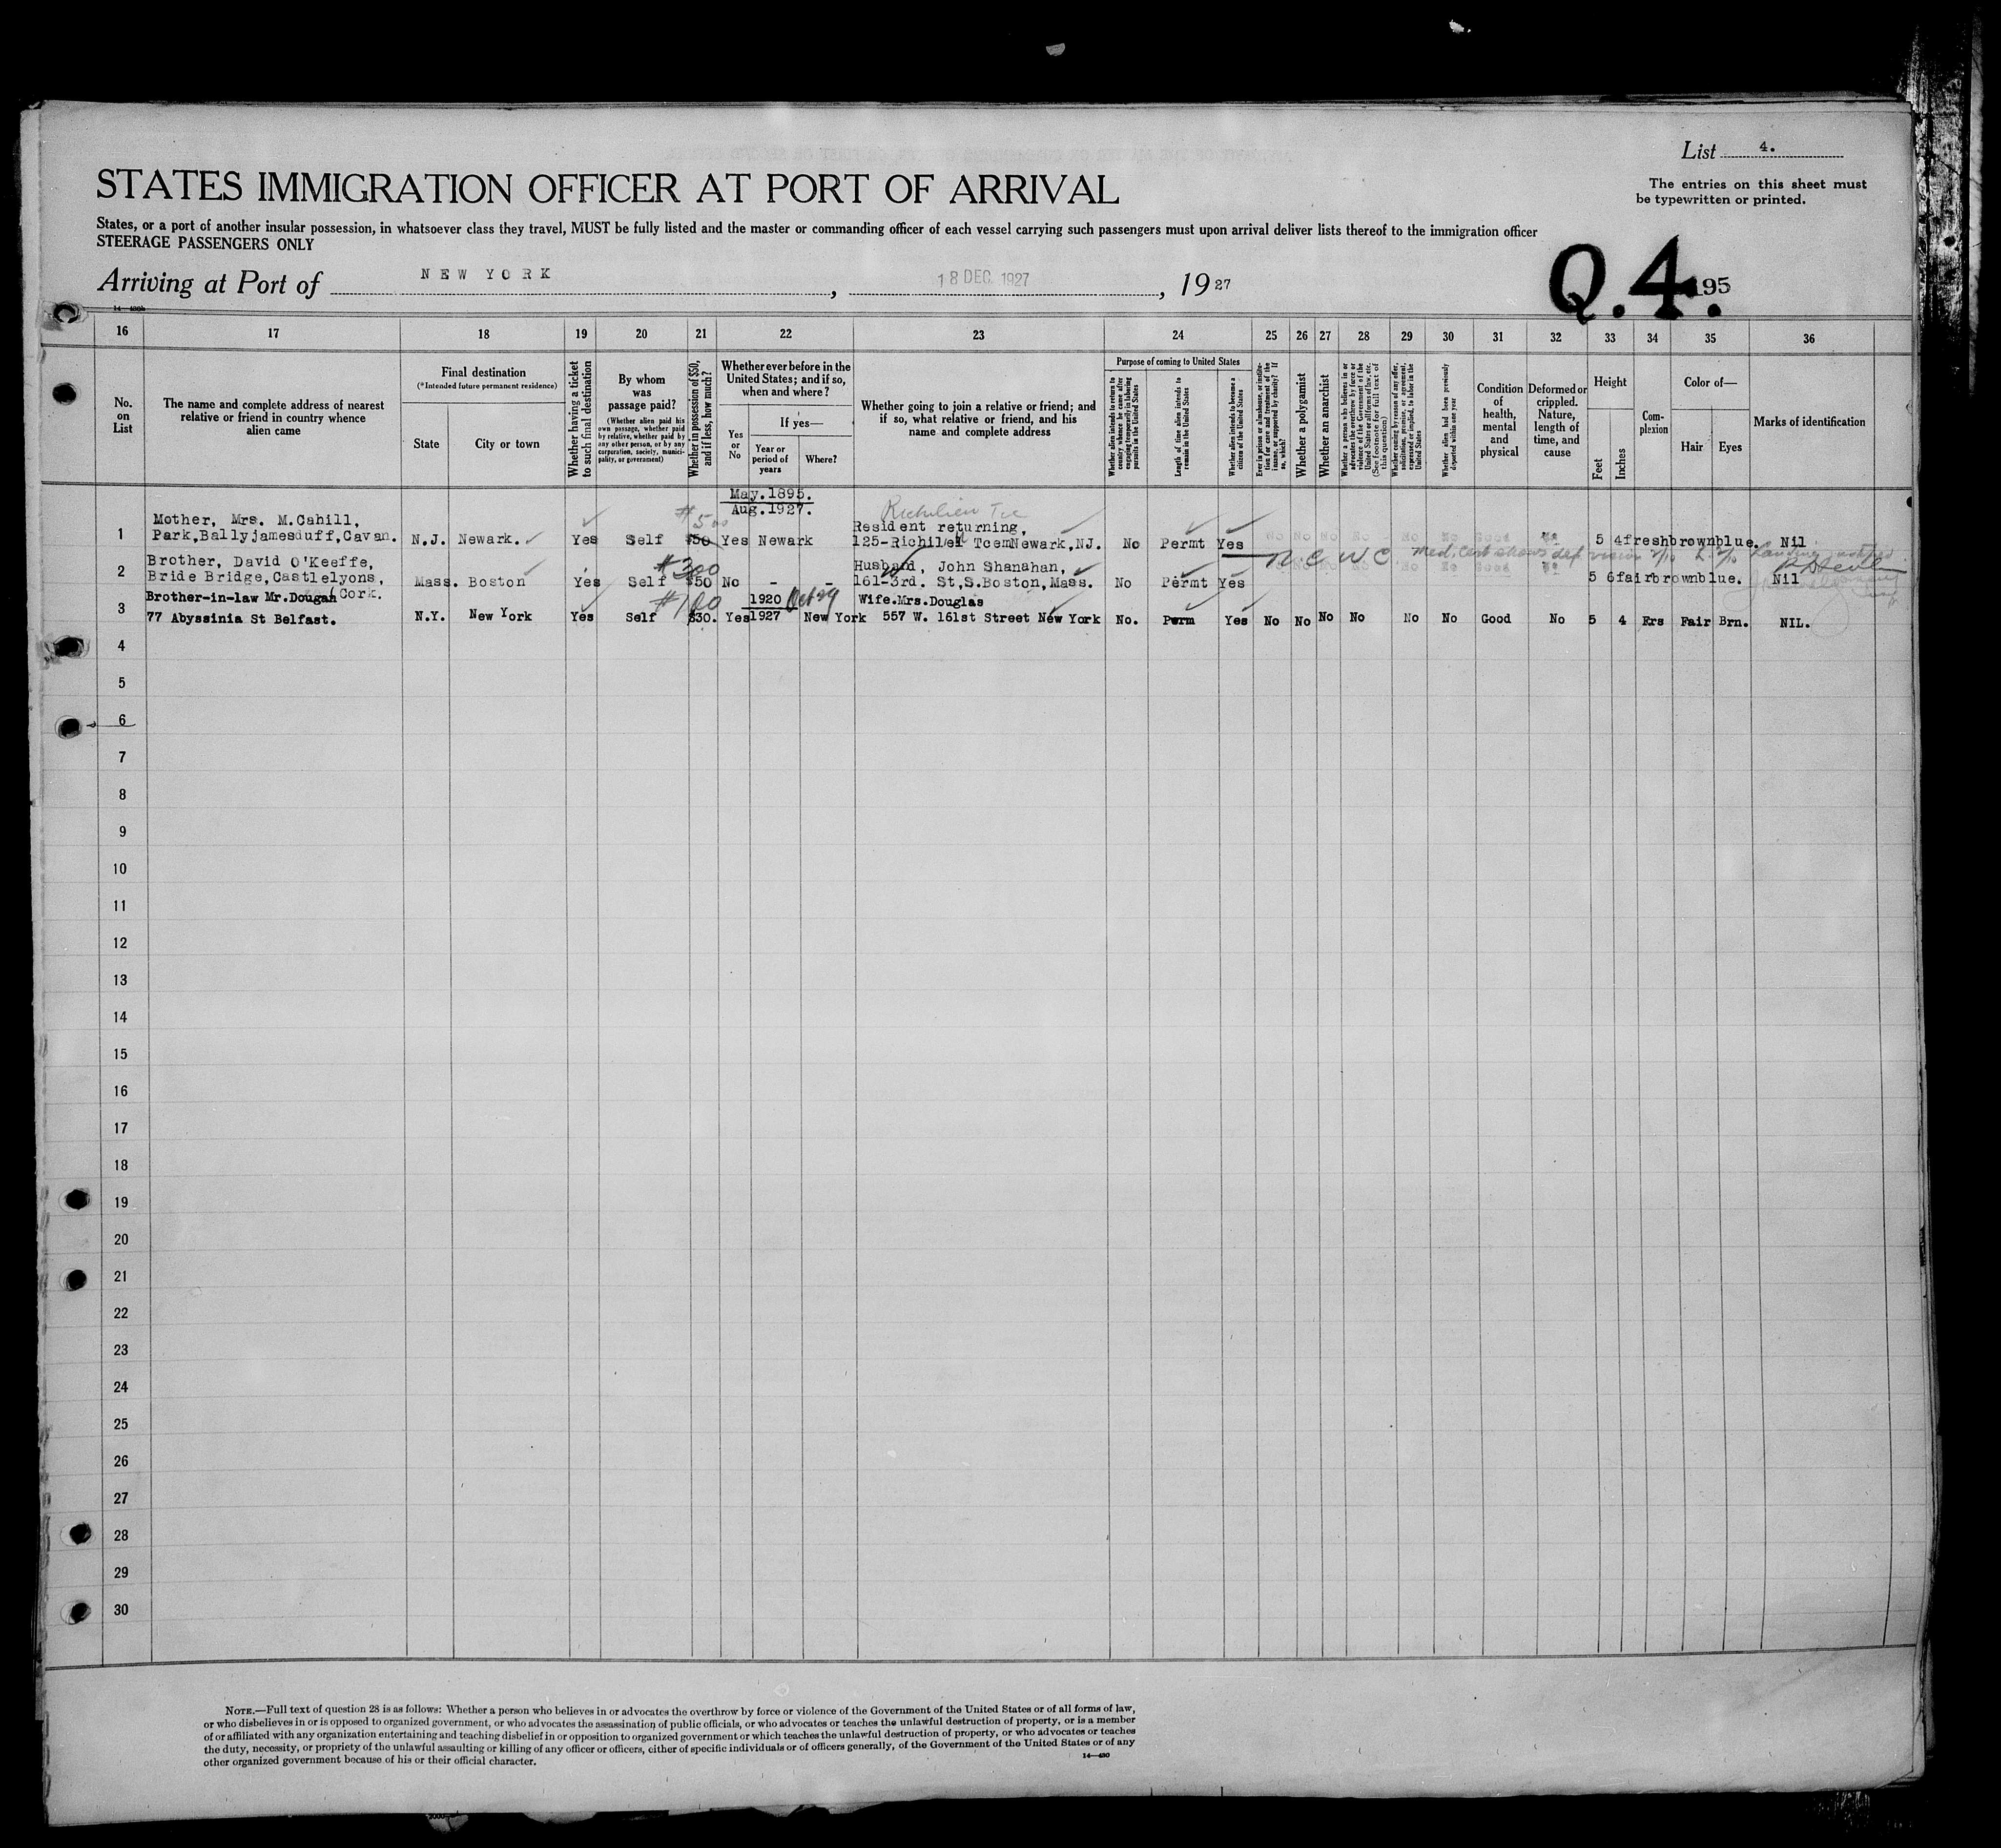 List 4.
The entries on this sheet must
be typewritten or printed.
STATES IMMIGRATION OFFICER AT PORT OF ARRIVAL
States, or a port of another insular possession, in whatsoever class they travel, MUST be fully listed and the master or commanding officer of each vessel carrying such passengers must upon arrival deliver lists thereof to the immigration officer
STEERAGE PASSENGERS ONLY
Arriving at Port of NEW YORK, 18 DEC 1927, 1927
Q.4. 195
16 17 18 19 20 21 22 23 24 25 26 27 28 29 30 31 32 33 34 35 36
No. on List
The name and complete address of nearest relative or friend in country whence alien came
Final destination
(*Intended future permanent residence)
State
City or town
Whether having a ticket to such final destination
By whom was passage paid?
(Whether alien paid his own passage, whether paid by relative, whether paid by any other person, or by any corporation, society, municipality, or government)
Whether in possession of $50, and if less, how much?
Whether ever before in the United States; and if so, when and where?
Yes or No
If yes—
Year or period of years
Where?
Whether going to join a relative or friend; and if so, what relative or friend, and his name and complete address
Purpose of coming to United States
Whether alien intends to return to country whence he came after engaging temporarily in laboring pursuits in the United States
Length of time alien intends to remain in the United States
Whether alien intends to become a citizen of the United States
Ever in prison or almshouse, or institution for care and treatment of the insane, or supported by charity? If so, which?
Whether a polygamist
Whether an anarchist
Whether a person who believes in or advocates the overthrow by force or violence of the Government of the United States or all forms of law, etc. (See footnote for full text of this question)
Whether coming by reason of any offer, solicitation, promise, or agreement, expressed or implied, to labor in the United States
Whether alien had been previously deported within one year
Condition of health, mental and physical
Deformed or crippled. Nature, length of time, and cause
Height
Feet
Inches
Complexion
Color of—
Hair
Eyes
Marks of identification
May.1895.
Aug.1927.
Richelieu Tce
1 Mother, Mrs. M.Cahill,
Park,Ballyjamesduff,Cavan. N.J. Newark. Yes Self $50 $500 Yes Newark Resident returning,
125-Richileu TcemNewark,NJ. No Permt Yes No No No No No No Good No 5 4 fresh brown blue. Nil
2 Brother, David O'Keeffe,
Bride Bridge,Castlelyons,
Cork. Mass. Boston Yes Self $50 $300 No - - Husband, John Shanahan,
161-3rd. St,S.Boston,Mass. No Permt Yes No No No No No No Good No 5 6 fair brown blue. Nil
Med. Cert shows def vision
3 Brother-in-law Mr.Dougan
77 Abyssinia St Belfast. N.Y. New York Yes Self $30. $100 Yes 1920
1927 New York Wife.Mrs.Douglas
557 W. 161st Street New York No. Perm Yes No No No No No No Good No 5 4 Frs Fair Brn. NIL.
4
5
6
7
8
9
10
11
12
13
14
15
16
17
18
19
20
21
22
23
24
25
26
27
28
29
30
NOTE.—Full text of question 28 is as follows: Whether a person who believes in or advocates the overthrow by force or violence of the Government of the United States or of all forms of law,
or who disbelieves in or is opposed to organized government, or who advocates the assassination of public officials, or who advocates or teaches the unlawful destruction of property, or is a member
of or affiliated with any organization entertaining and teaching disbelief in or opposition to organized government or which teaches the unlawful destruction of property, or who advocates or teaches
the duty, necessity, or propriety of the unlawful assaulting or killing of any officer or officers, either of specific individuals or of officers generally, of the Government of the United States or of any
other organized government because of his or their official character.
14—430